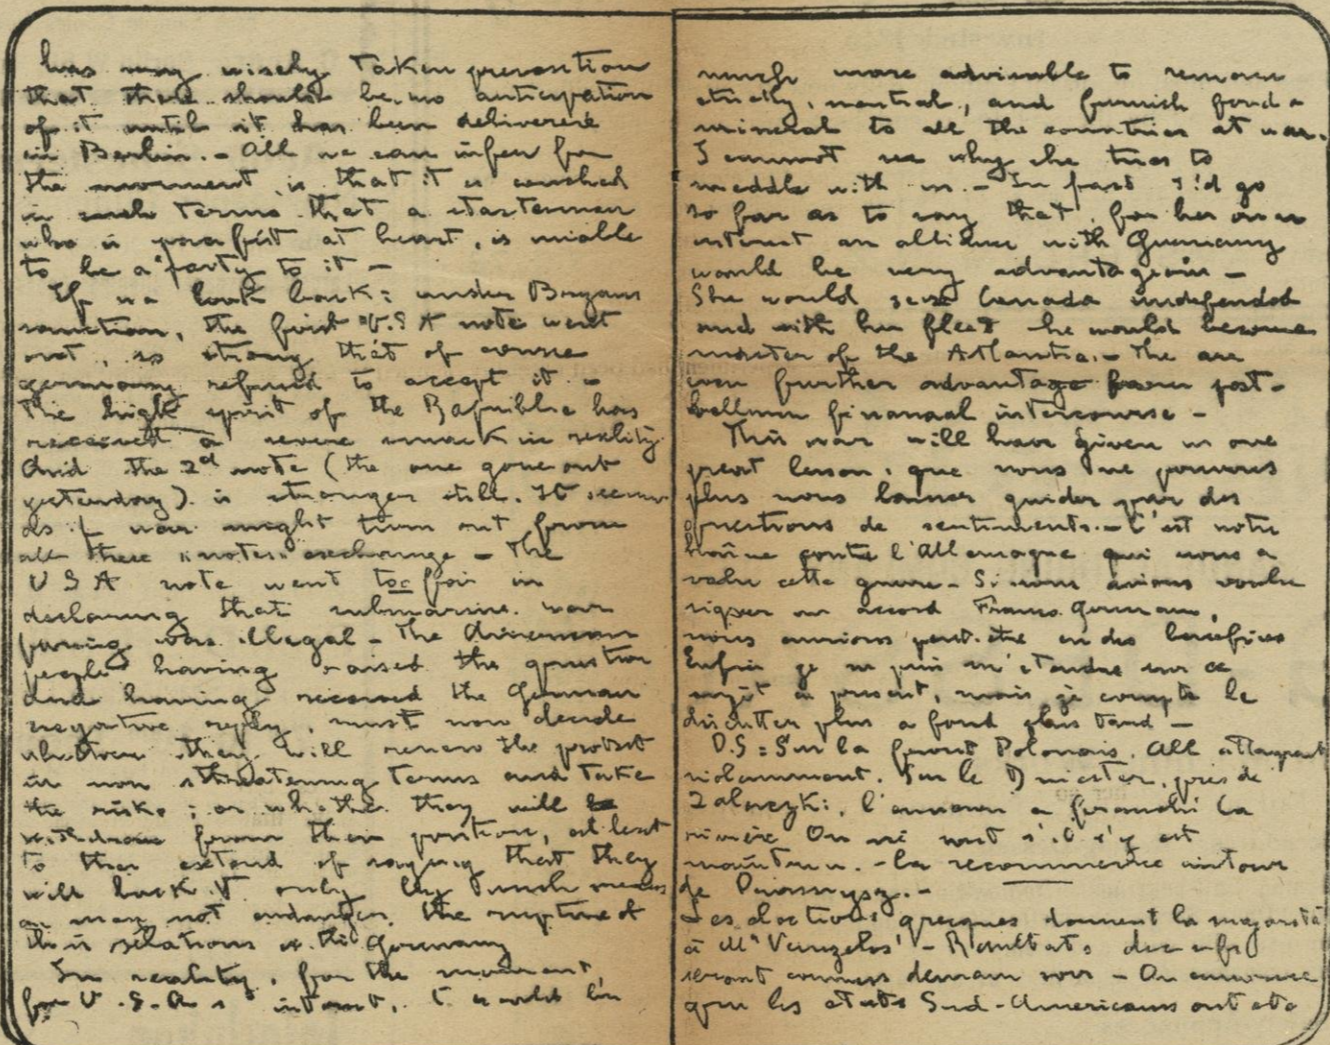 has very wisely taken precaution
that there should be no anticipation
of it until it has been delivered
in Berlin. - All we can infer for
the moment, is that it is couched
in such terms that a statesman
who is pacifist at heart, is unable
to be a party to it -
If we look back: under Bryans
sanction, the first U.S A note went
out, so strong that of course
germany refused to accept it. -
The high spirit of the Republic has
received a severe smack in reality.
And the 2d note (the one gone out
yesterday) is stronger still. It seems
as if war might turn out from
all these "notes" exchange - The
U S A note went too far in
declaring that submarine war
faring was illegal - The American
people having raised the question
and having received the German
negative reply, must now decide
whether they will renew the protest
in non threatening terms and take
the risks ; or whether they will
withdraw from their position, at least
to the extend of saying that they
will back it only by such means
as may not endanger the rupture of
their relations with Germany
In reality, for the moment,
for U.S.A s' interest, it would be
much more advisable to remain
strictly neutral, and furnish food &
mineral to all the countries at war.
I cannot see why she tries to
meddle with us. - In fact I'd go
so far as to say that, for her own
interest an alliance with Germany
would be very advantageous -
She would seize Canada undefended
and with her fleet she would become
mistress of the Atlantic. - The are
even further advantage from post-
bellum financial intercourse -
This war will have given us one
great lesson: que nous ne pouvons
plus nous laisser guider par des
questions de sentiments. - C'est notre
haine contre l'Allemagne qui nous a
valu cette guerre - Si nous avions voulu
signer un accord Franco German,
nous aurions peut-être eu des bénéfices
Enfin je ne puis m'etendre sur ce
sujet à present, mais je compte le
discuter plus a fond plus tard -
O.S: Sur la front Polonais. All attaquent
violamment. Sur le Dniester, près de
Zalesczyki, l'ennemi a franchi la
rivière On ne sait s'il s'y est
maintenu. - Ca recommence autour
de Prasnysz. -
Les elections grecques donnent la majorité
à Mr Venizelos - Resultats
seront connus demain soir - On annonce
que les etats Sud-Americains ont ete